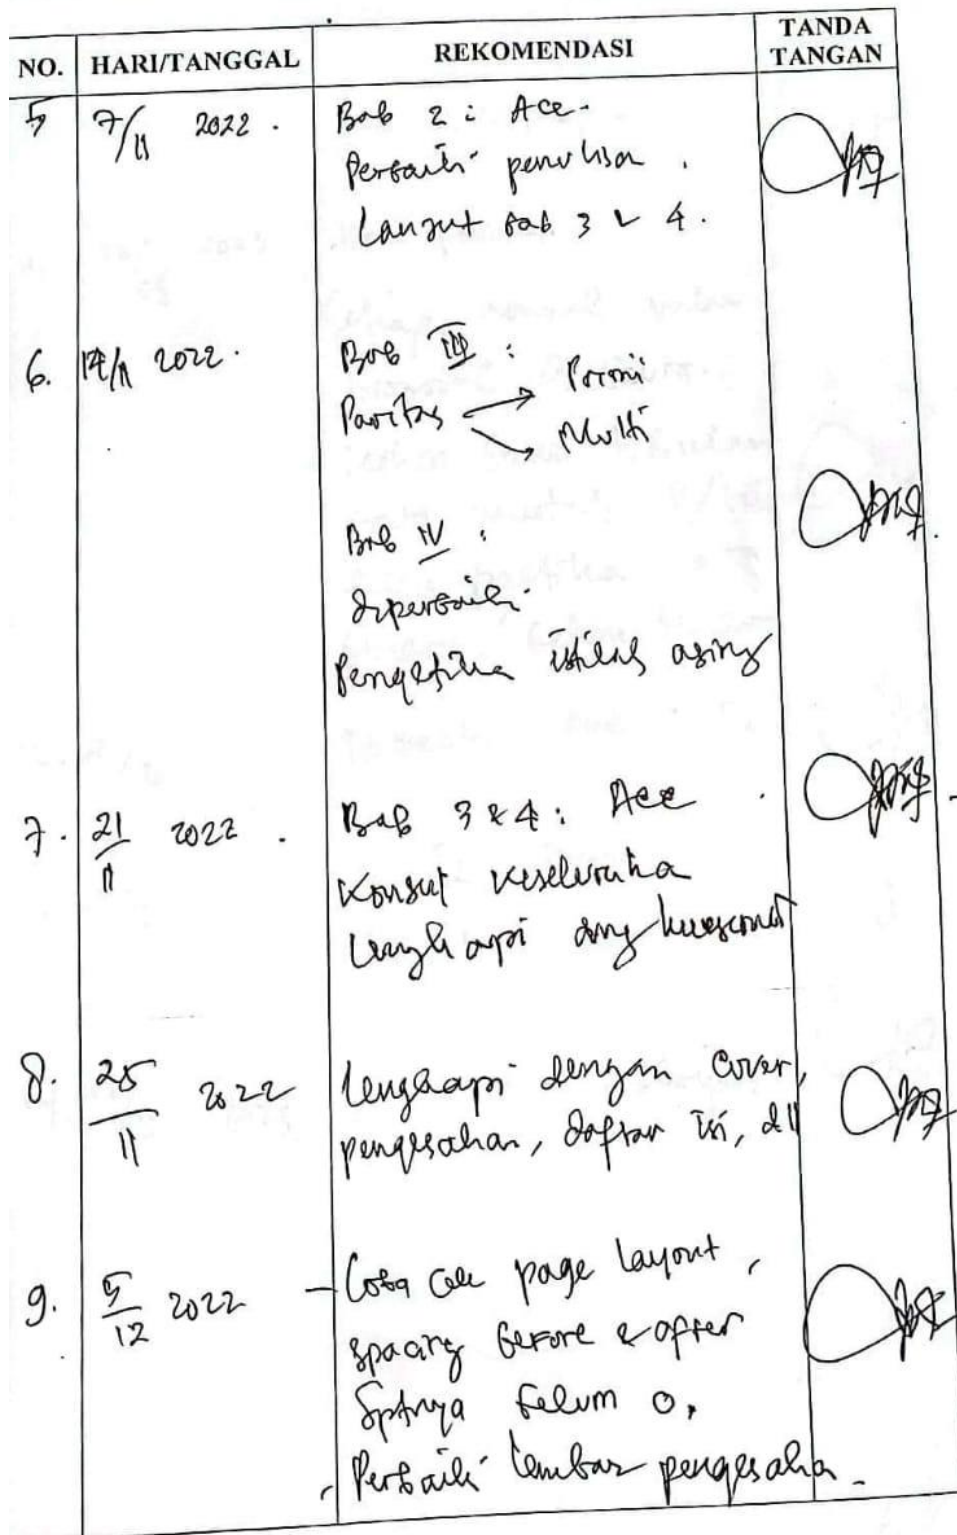 NO. HARI/TANGGAL REKOMENDASI TANDA TANGAN
5 7/11 2022. Bab 2 : Acc.
Perbaiki penulisan.
Lanjut bab 3 & 4.
6. 14/11 2022. Bab III :
Paritas → Primi
→ Multi
Bab IV :
diperbaiki
Pengetika istilah asing
7. 21/11 2022. Bab 3 & 4 : Acc
Konsul keseluruha
Lengkapi dng
8. 25/11 2022 Lengkapi dengan cover,
pengesahan, daftar isi, dll
9. 5/12 2022 - Coba cek page layout,
spacing before & after
Sptnya belum 0.
- Perbaiki lembar pengesaha